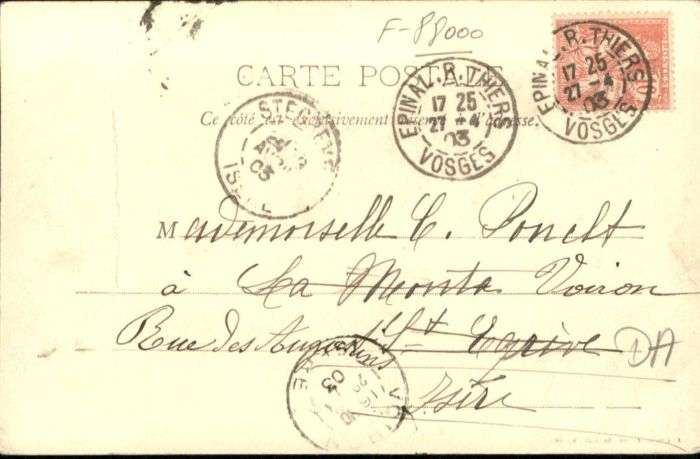 F-88000
CARTE POSTALE
Ce côté est exclusivement réservé à l'adresse.
EPINAL. R. THIERS
17 25
27 -4
03
VOSGES
EPINAL. R. THIERS
17 25
27 -4
03
VOSGES
STEGREVE
03
ISERE
Mademoiselle C. Ponclt
à La Monta Voiron
Rue des Augustins St Egrève
Isère
DA
03